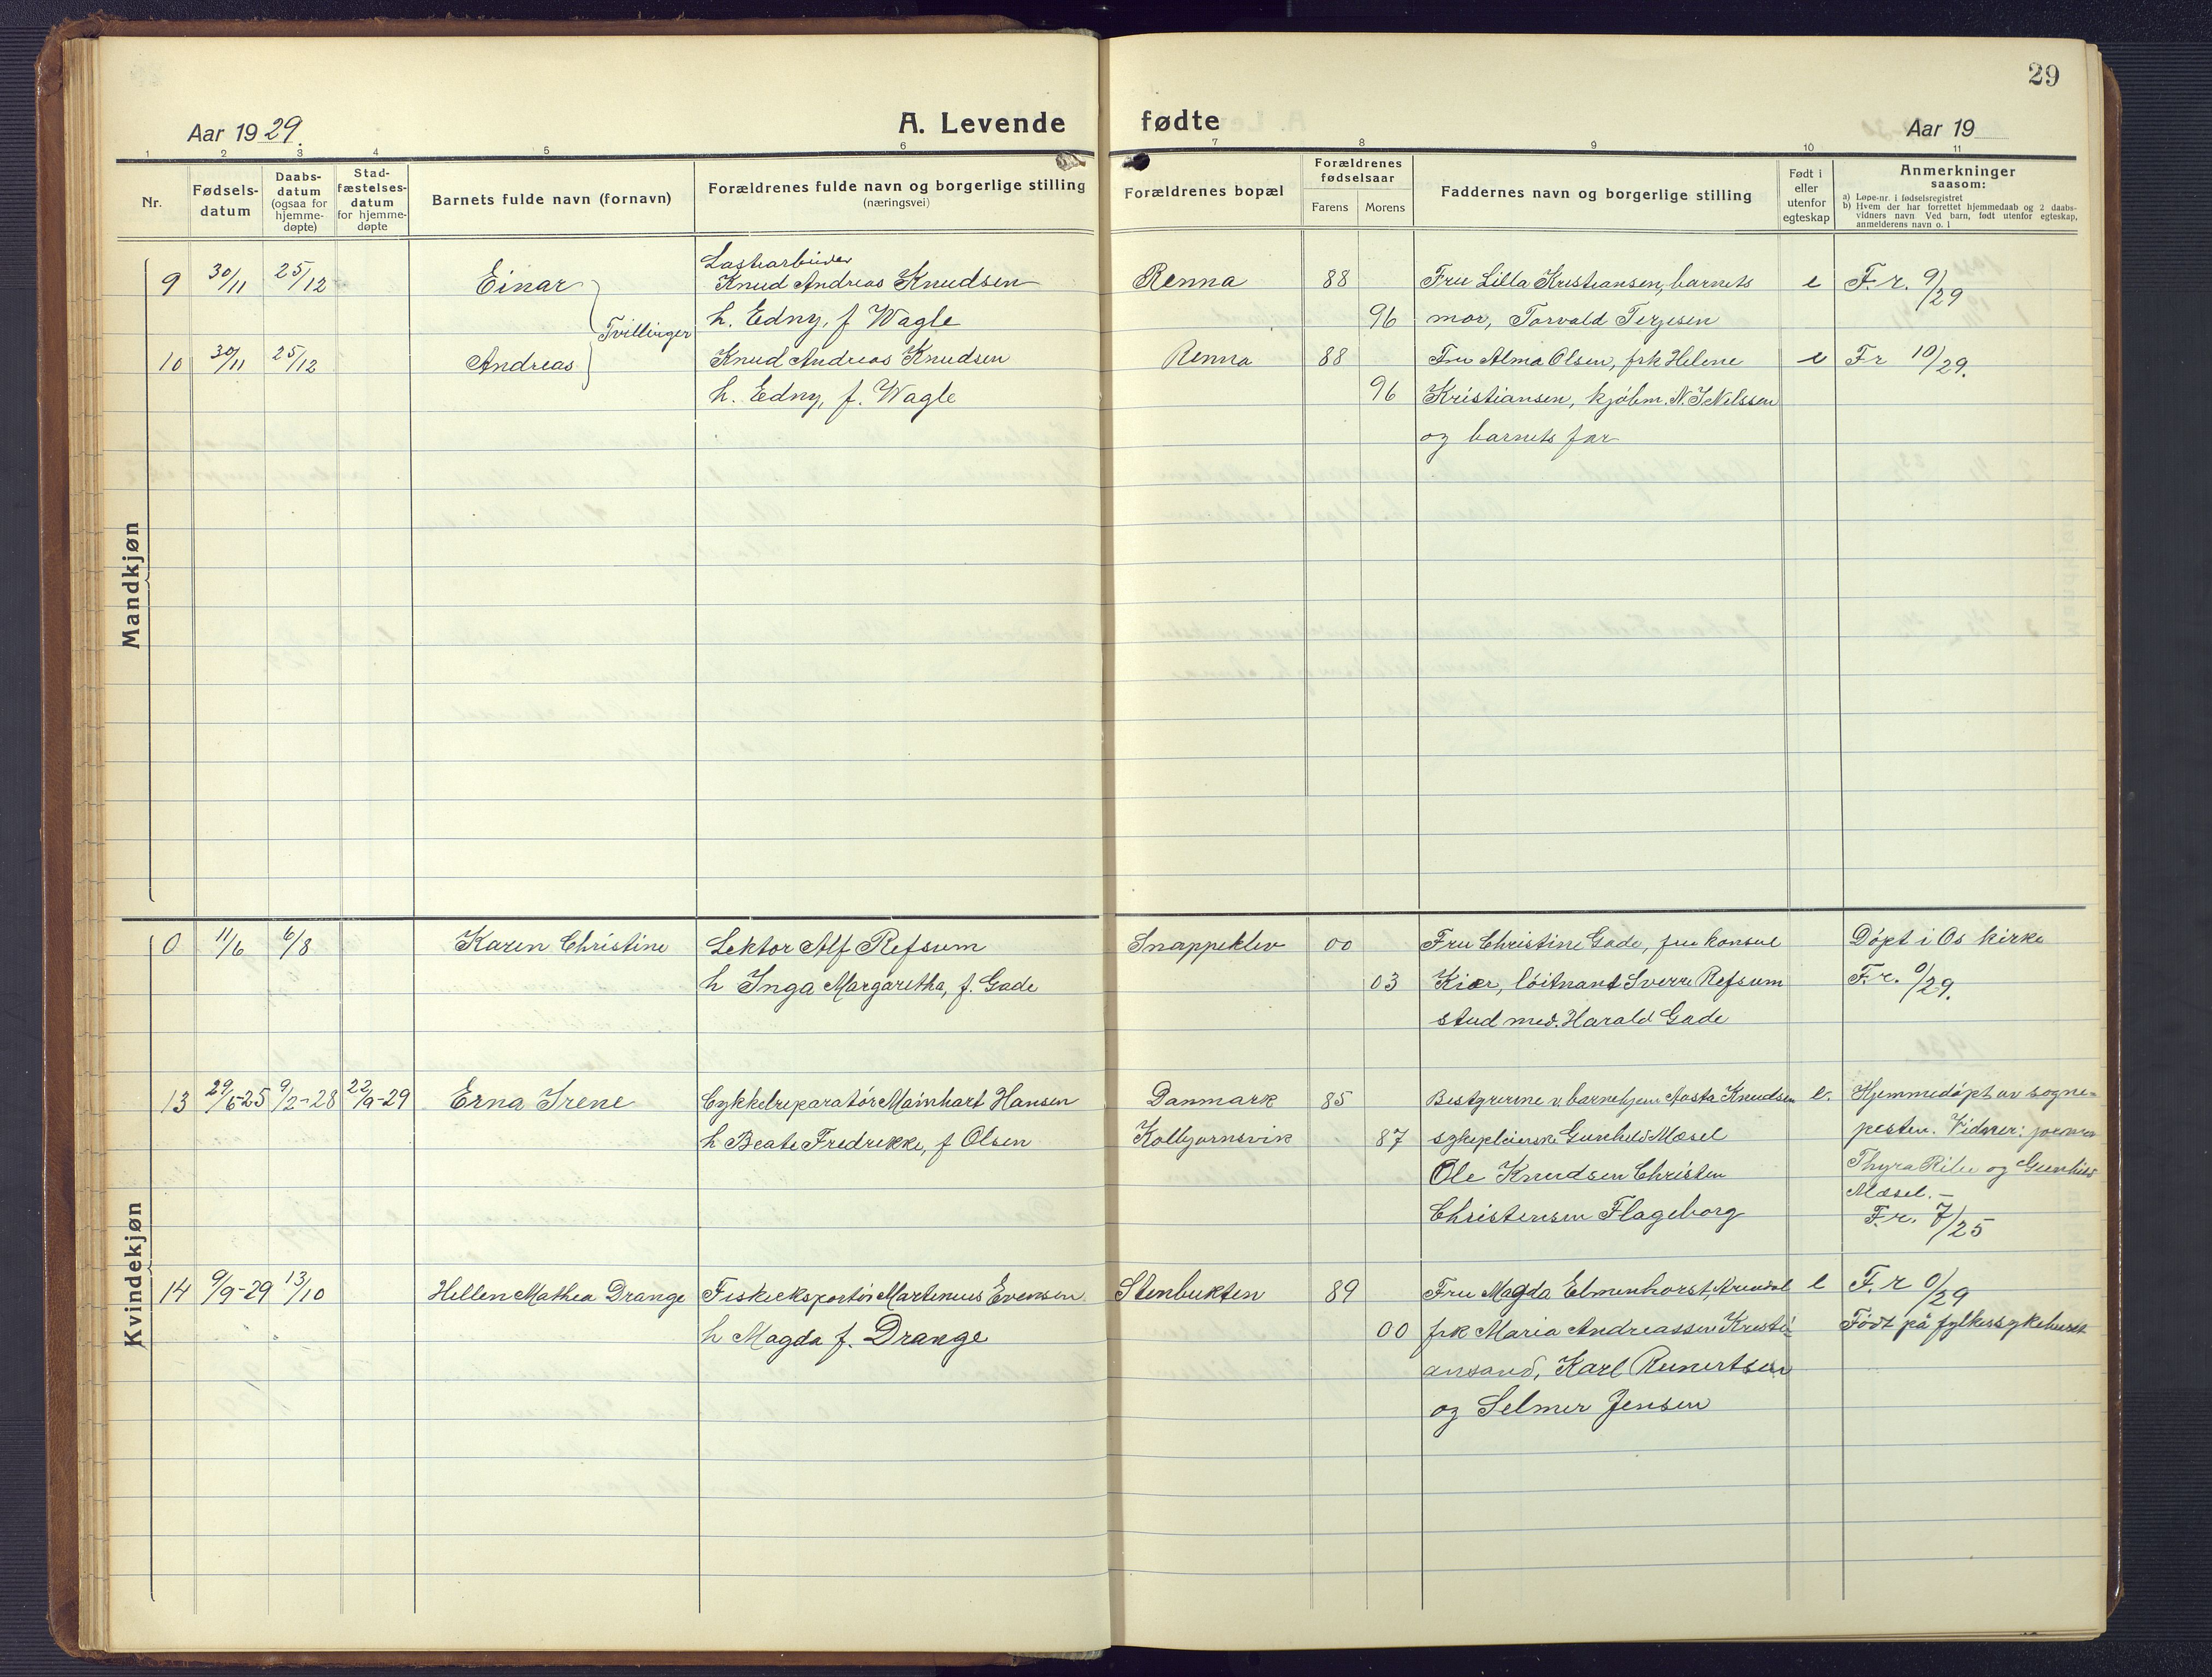 29
Aar 1929.
A. Levende fødte
Aar 19
1 2 3 4 5 6 7 8 9 10 11
Nr.
Fødsels-
datum
Daabs-
datum
(ogsaa for
hjemme-
døpte)
Stad-
fæstelses-
datum
for hjemme-
døpte
Barnets fulde navn (fornavn)
Forældrenes fulde navn og borgerlige stilling
(næringsvei)
Forældrenes bopæl
Forældrenes
fødselsaar
Farens Morens
Faddernes navn og borgerlige stilling
Født i
eller
utenfor
egteskap
Anmerkninger
saasom:
a) Løpe-nr. i fødselsregistret
b) Hvem der har forrettet hjemmedaab og 2 daabs-
vidners navn Ved barn, født utenfor egteskap,
anmelderens navn o. l
Mandkjøn
Lastearbeider
9 30/11 25/12 Einar Knud Andreas Knudsen Renna 88 Fru Lilla Kristiansen, barnets e F. r. 9/29
Tvillinger
h. Edny, f Wagle 96 mor, Torvald Terjesen
10 30/11 25/12 Andreas Knud Andreas Knudsen Renna 88 Fru Alma Olsen, frk Helene e F r 10/29.
h. Edny, f. Wagle 96 Kristiansen, kjøbm. N. J Nilssen
og barnets far
Kvindekjøn
0 11/6 6/8 Karen Christine Lektor Alf Refsum Snappeklev 00 Fru Christine Gade, fru konsul Døpt i Os kirke
h Inga Margaretha, f. Gade 03 Kiær, løitnant Sverre Refsum F. r. 0/29.
stud med. Harald Gade
13 29/6-25 9/2-28 22/9-29 Erna Irene Cykkelreparatør Mainhart Hansen Danmark 85 Bestyrerinne v. barnehjem Aasta Knudsen e. Hjemmedøpt av sogne-
h Beate Fredrikke, f Olsen Kolbjørnsvik 87 sykepleierske Gunhild Mæsel pesten. Vidner:
Ole Knudsen Christen Thyra Riber og Gunhild
Mæsel. –
Christensen Flageborg F. r. 7/25
14 9/9-29 13/10 Hellen Mathea Drange Fiskeeksportør Martinius Evensen Stenbukten 89 Fru Magda Elmenhorst, Arendal e F. r 0/29
h Magda f. Drange 00 frk Maria Andreassen Kristi- Født på fylkessykehuset
ansand, Karl Reinertsen
og Selmer Jensen